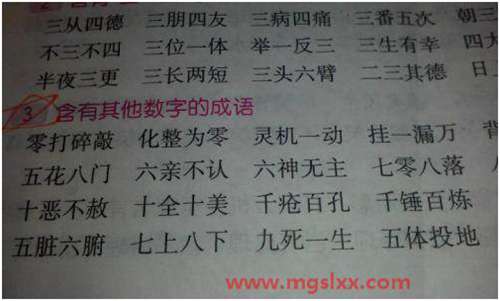 三从四德 三朋四友 三病四痛 三番五次 朝三
不三不四 三位一体 举一反三 三生有幸 四大
半夜三更 三长两短 三头六臂 二三其德 日
3 含有其他数字的成语
零打碎敲 化整为零 灵机一动 挂一漏万 背
五花八门 六亲不认 六神无主 七零八落
十恶不赦 十全十美 千疮百孔 千锤百炼
五脏六腑 七上八下 九死一生 五体投地
www.mgslxx.com